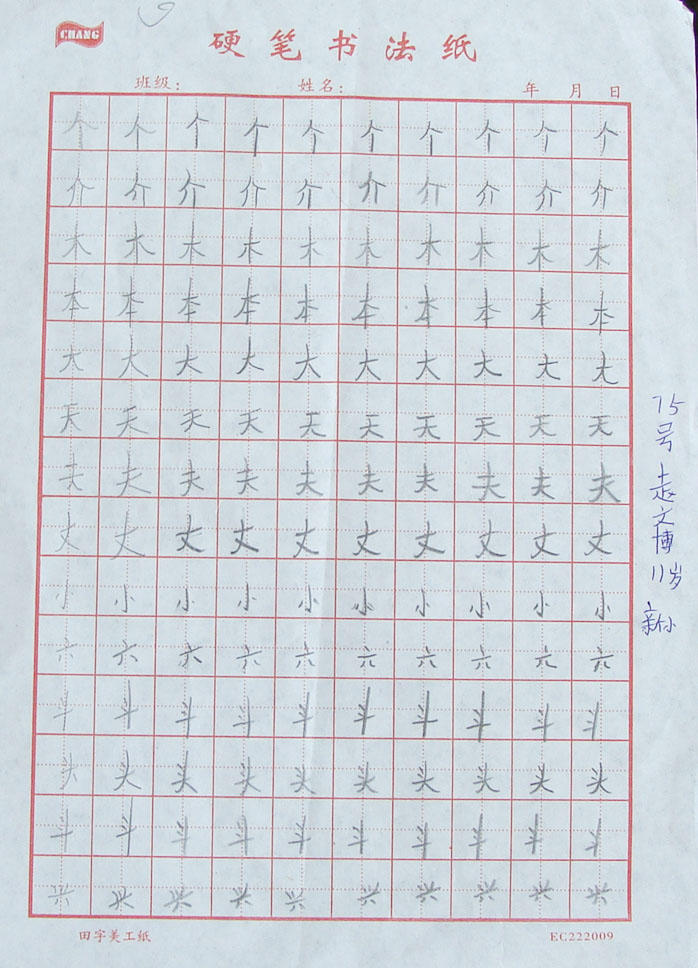 CHANG
硬笔书法纸
班级： 姓名： 年 月 日
个个个个个个个个个个
介介介介介介介介介介
木木木木木木木木木木
本本本本本本本本本本
大大大大大大大大大大
天天天天天天天天天天
夫夫夫夫夫夫夫夫夫夫
丈丈丈丈丈丈丈丈丈丈
小小小小小小小小小小
六六六六六六六六六六
斗斗斗斗斗斗斗斗斗斗
头头头头头头头头头头
斗斗斗斗斗斗斗斗斗斗
兴兴兴兴兴兴兴兴兴兴
75号 文博 11岁 新小
田字美工纸 EC222009